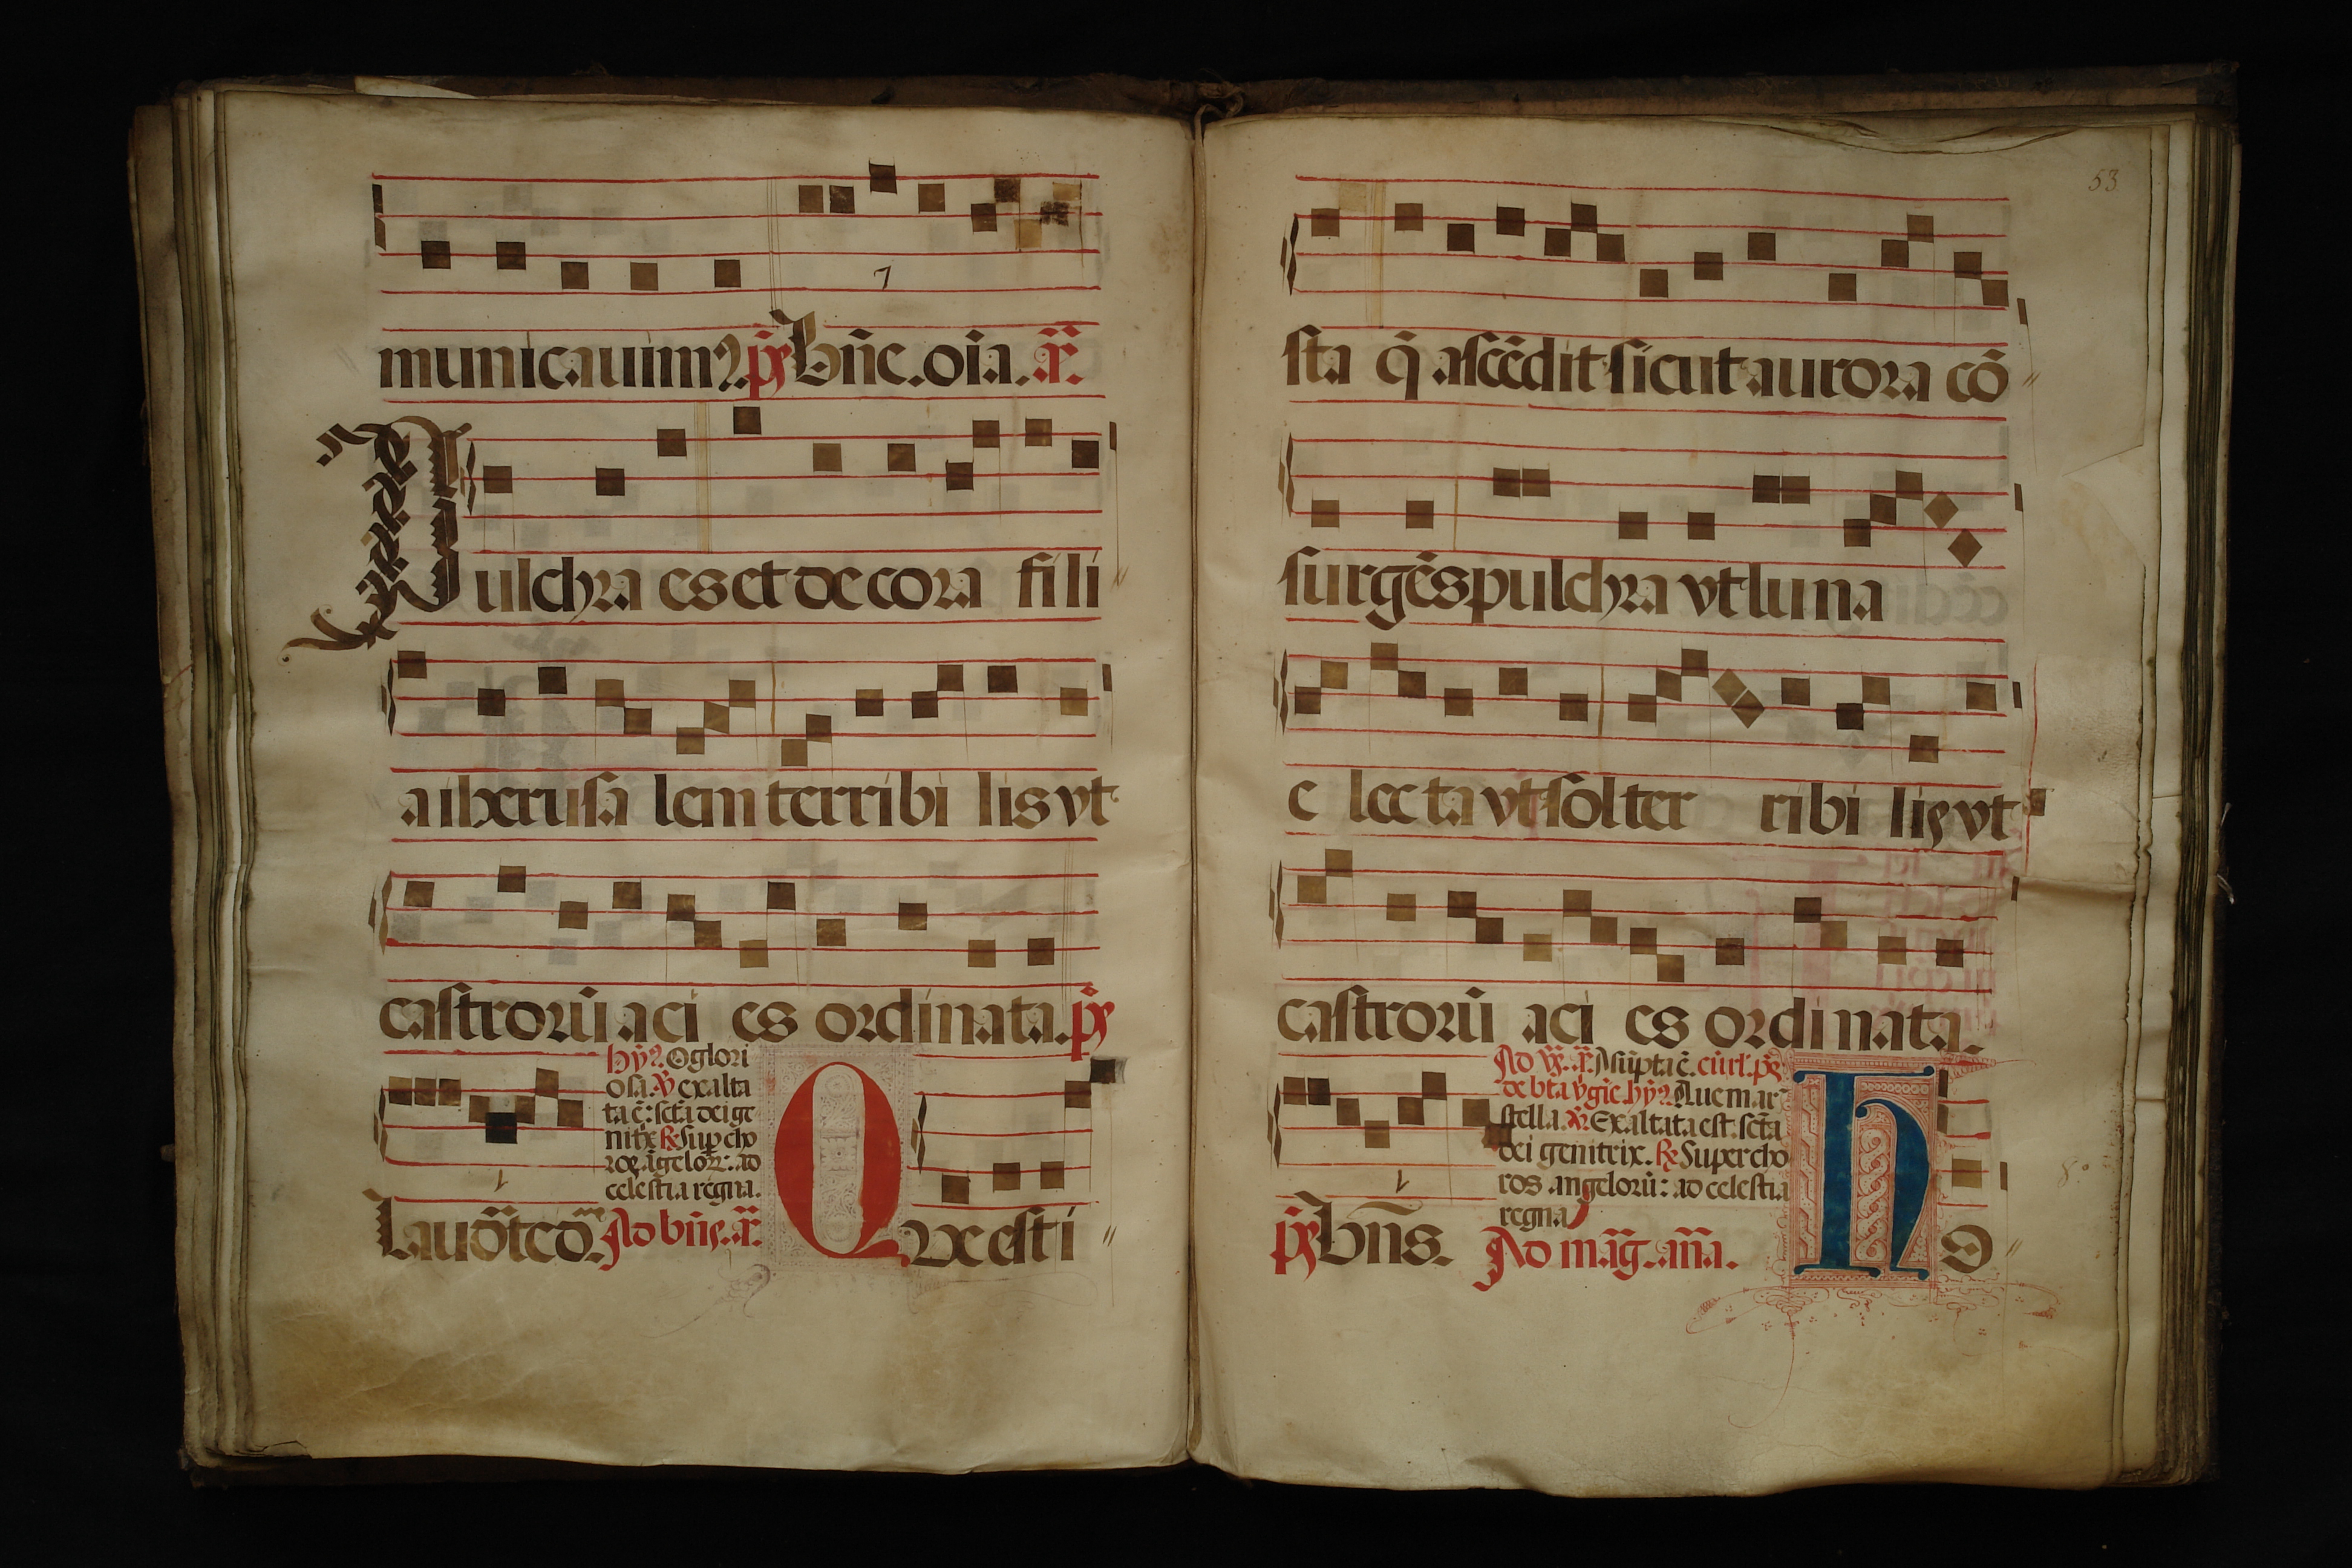 municauim⁹. p̄s Bn̄c. oīa. ā.
Pulchra es et decora fili
a iherusalem terribilis vt
castrorū acies ordinata. p̄s
hȳ. O glori
osa. v̄ exalta
ta ē: scta dei ge
nitx ℟ Sup cho
ros āgelorꝝ: ad
celestia regna.
Laudateđm. Ad bn̄s. ā. Que esti
53
sta q̄ ascēdit sicut aurora cō
surgēs pulchra vt luna
electa vt sol terribilis vt
castrorū acies ordinata.
Asūpta ē. cū rl'. ps̄
de bta v̄gie. hȳ. Aue mar
stella. v̄. Exaltata est scta
dei genitrix. ℟ Super cho
ros angelorū: ad celestia
regna
p̄s Bn̄s. Ad māg. an̄a. Ho
8º